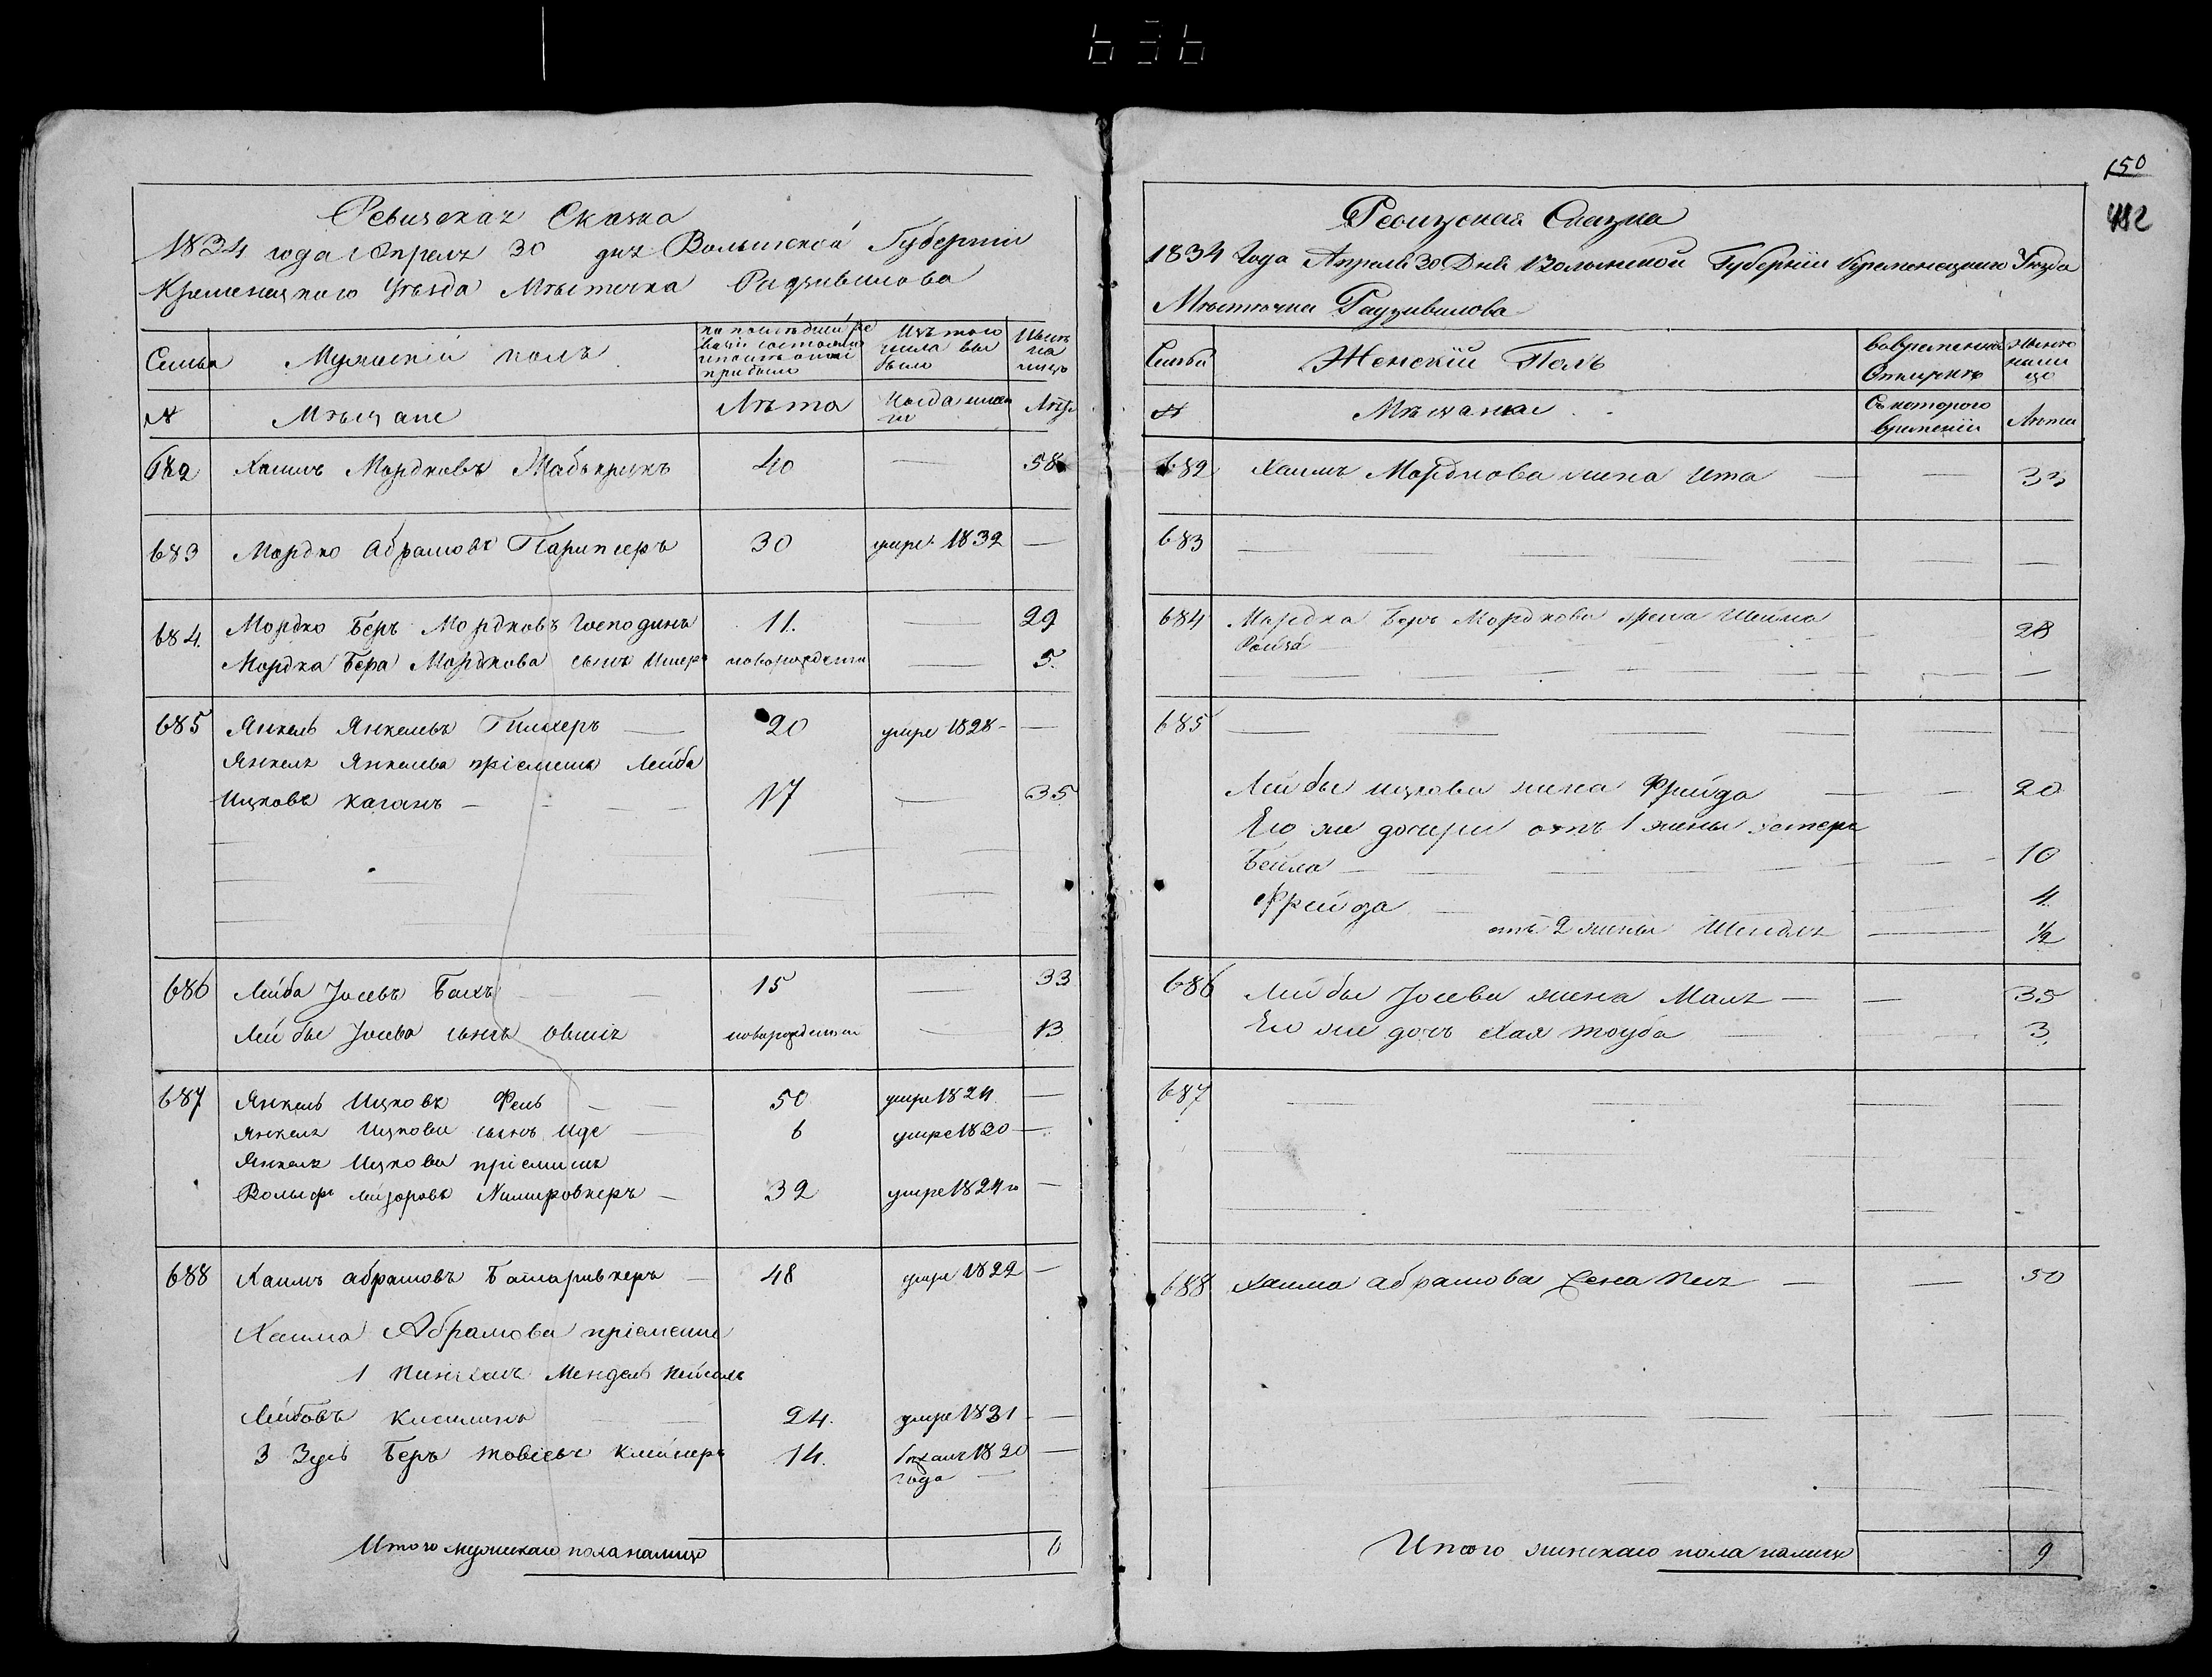 636
Ревизская Сказка
1834 года Апреля 30 дня Волынской Губернии
Кременецкого Уезда Мѣстечка Радзивилова
Семьи
Мужескій полъ
по послѣдней ре
визіи состояло
и послѣ оной
прибыло
Изъ того
числа вы
было
Нынѣ
на
лицо
№
Мѣщане
Лѣта
Когда имен
но
Лѣта
682 Хаимъ Мордковъ 40 — 58
683 Мордко Абрамовъ 30 умре 1832 —
684. Мордко Беръ Мордковъ Господинъ 11. — 29
Мордка Бера Мордкова сынъ новорожденны — 5.
685 Янкель Янкелевъ 20 умре 1828 —
Янкеля Янкелева пріемышъ Лейба
Ицковъ Каганъ — 17 — 35
686 Лейба Іосевъ 15 — 33
Лейбы Іосева сынъ новорожденны — 13
687 Янкель Ицковъ Фель 50 умре 1824 —
Янкеля Ицкова сынъ Иде 6 умре 1820 —
Янкеля Ицкова пріемышъ
Вольфъ Лейзоровъ Нимировкеръ — 32 умре 1824 го —
688 Хаимъ Абрамовъ — 48 умре 1822 —
Хаима Абрамова пріемыши
1 Пинхасъ Мендель
Лейбовъ 24. умре 1831 —
3 Зусь Беръ Товіевъ Клейнеръ 14. бѣжалъ 1820 —
года
Итого мужескаго пола налицо 6
150
482
Ревизская Сказка
1834 Года Апреля 30 Дня Волынской Губерніи Кременецкаго Уѣзда
Мѣстечка Радзивилова
Семьи
Женскій Полъ
Во временной
Отлучкѣ
Нынѣ
нали
цо
№
Мѣщанки
Съ которого
времени
Лѣта
682 Хаимъ Мордкова жена Ита — — 33
683 — —
684 Мордка Беръ Мордкова жена Шейма
Ройза — 28
685 —
Лейбы Ицкова жена Фрейда — — 20
Его же дочери отъ 1 жены Хестеръ
Бейла — — 10
Фрейда — — 4.
отъ 2 жены Шендля — 1/2
686 Лейбы Іосева жена Маля — — 35
Его же дочь Хая Тоуба — — 3
687 — —
688 Хаима Абрамова Жена Пея — — 50
Итого женскаго пола налицо 9